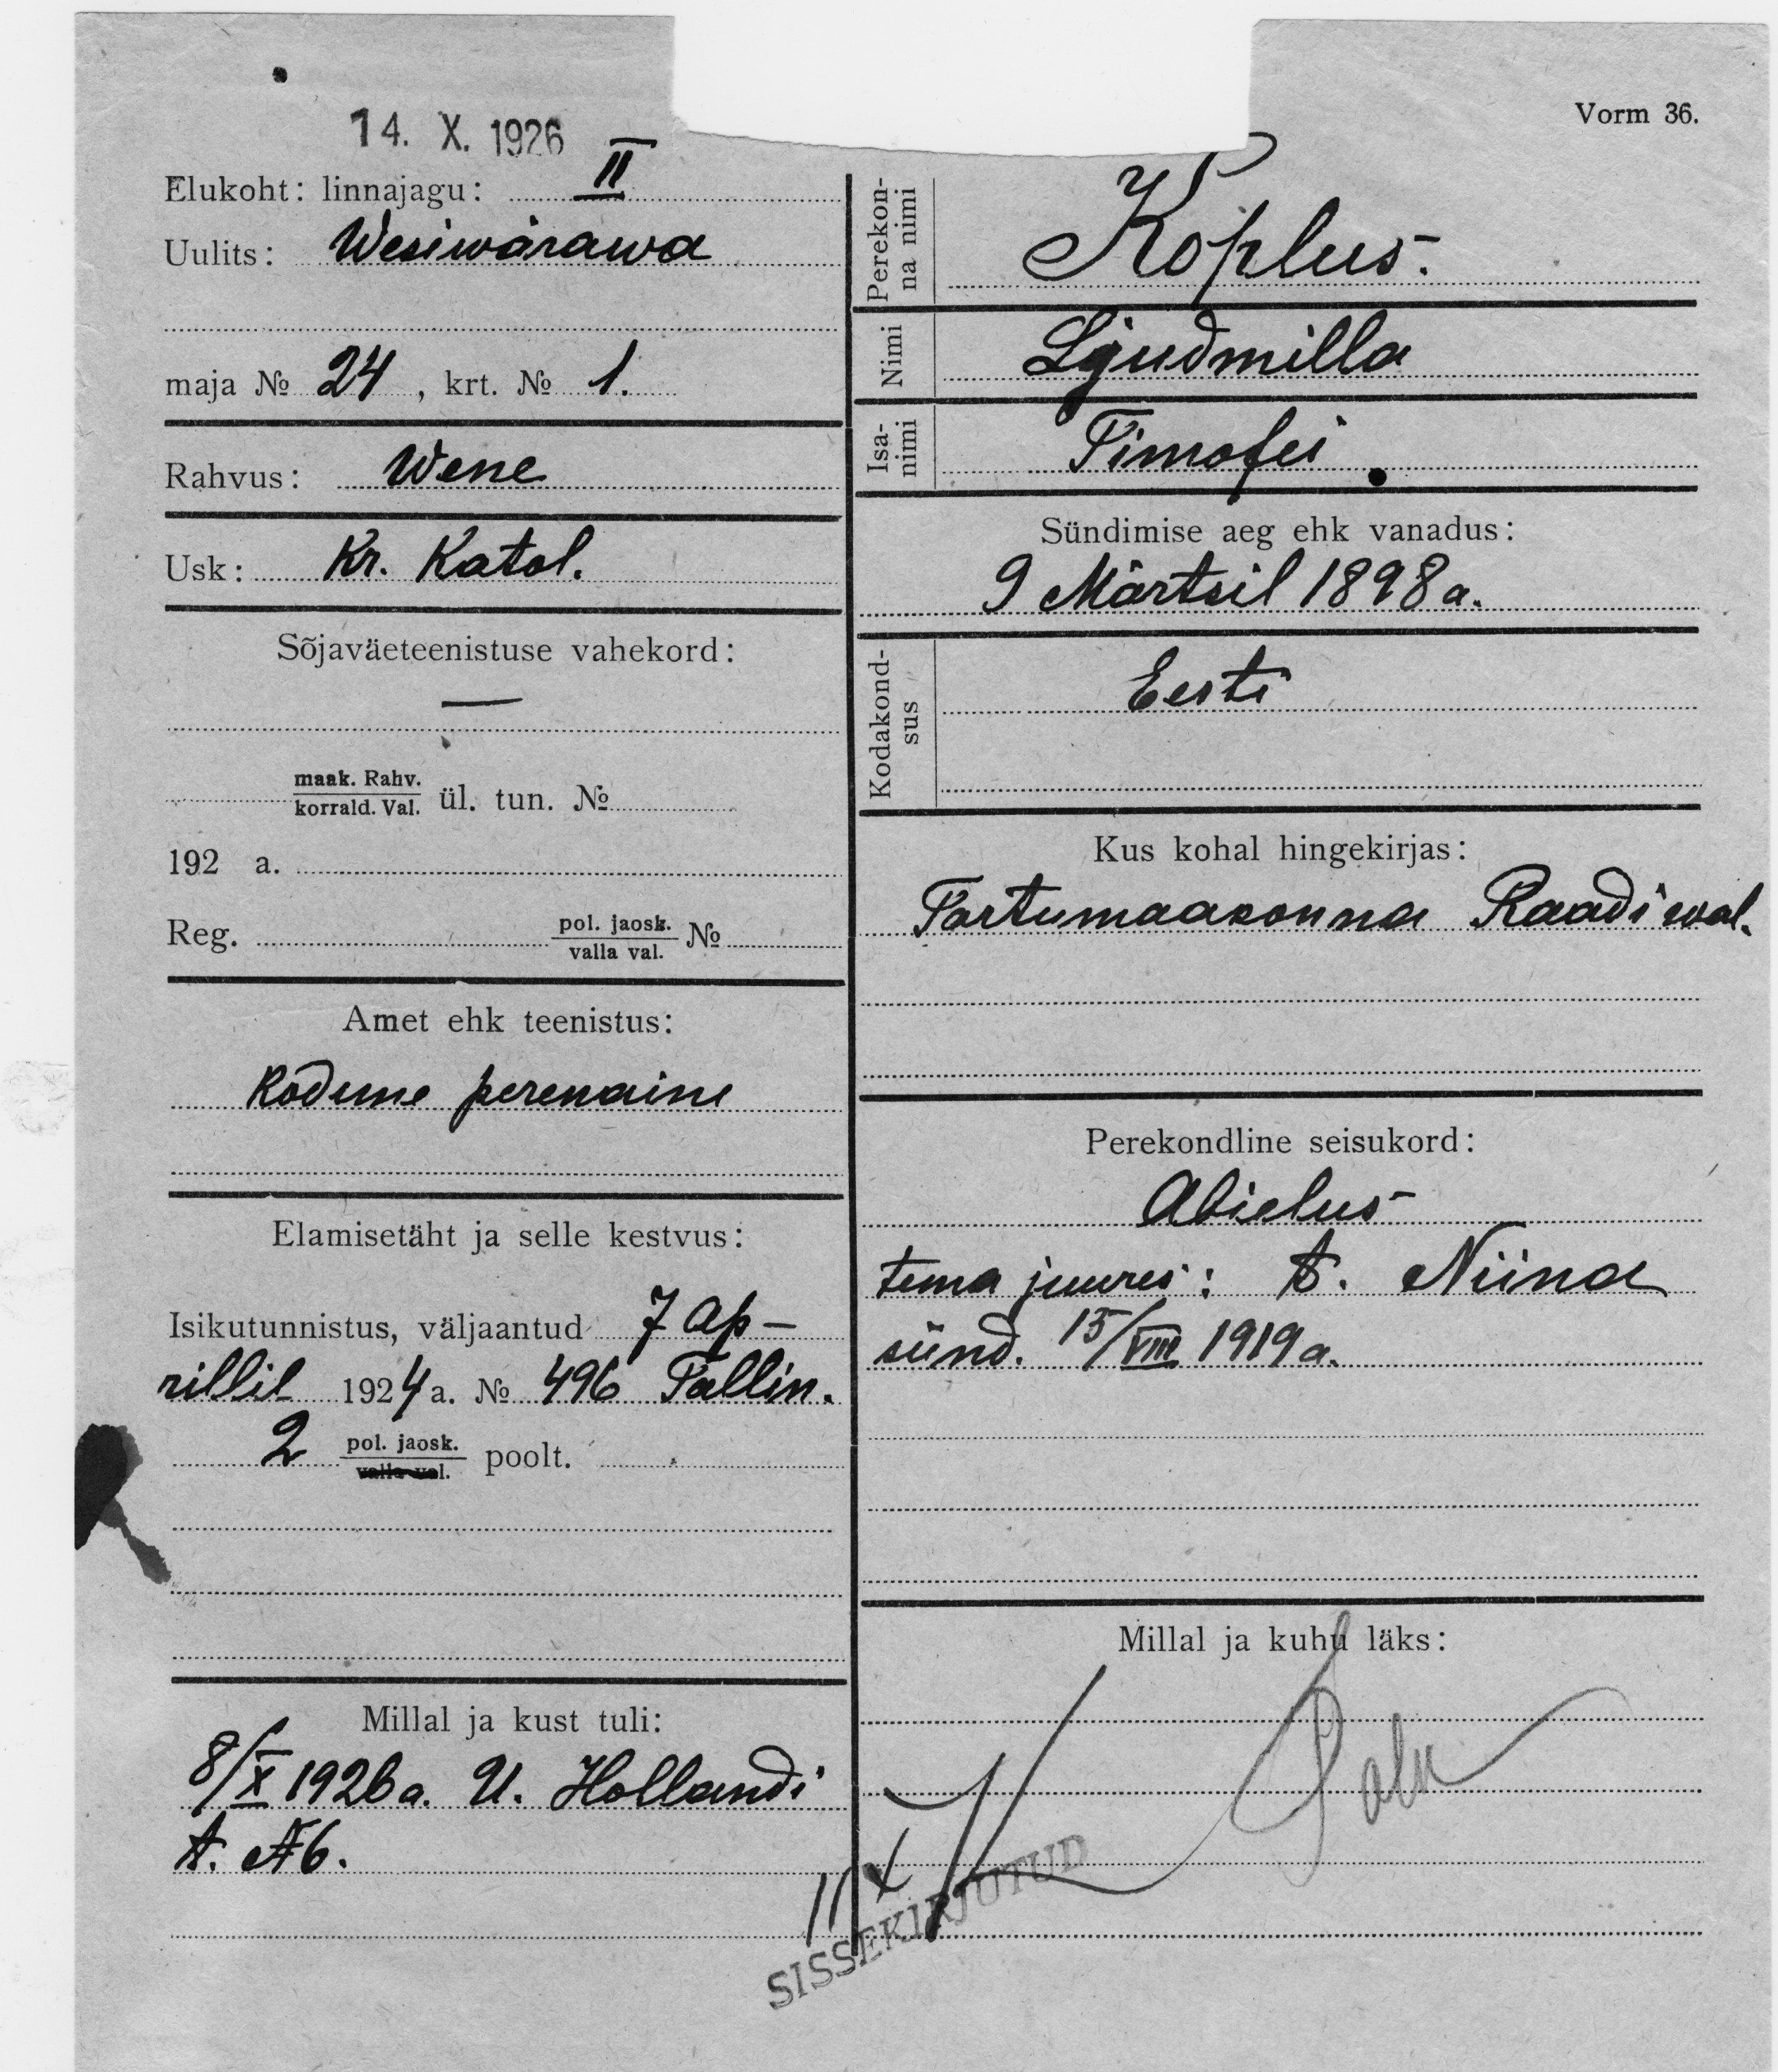 14. X. 1926
Vorm 36.
Elukoht: linnajagu: II
Uulits: Wesiwärawa
maja № 24, krt. № 1.
Rahvus: Wene
Usk: Kr. Katol.
Sõjaväeteenistuse vahekord:
—
maak. Rahv.
korrald. Val. ül. tun. №
192 a.
Reg. pol. jaosk.
valla val. №
Amet ehk teenistus:
Kodune perenaine
Elamisetäht ja selle kestvus:
Isikutunnistus, väljaantud 7 Ap-
rillil 1924 a. № 496 Tallin.
2 pol. jaosk. poolt.
valla val.
Millal ja kust tuli:
8/X 1926 a. U. Hollandi
t. № 6.
Perekon-
na nimi Koplus.
Nimi Ljudmilla
Isa-
nimi Timofei
Sündimise aeg ehk vanadus:
9 Märtsil 1898 a.
Kodakond-
sus Eesti
Kus kohal hingekirjas:
Tartumaakonna Raadi wal.
Perekondline seisukord:
Abielus
tema juures: t. Niina
sünd. 15/VIII 1919 a.
Millal ja kuhu läks:
11 X
SISSEKIRJUTUD